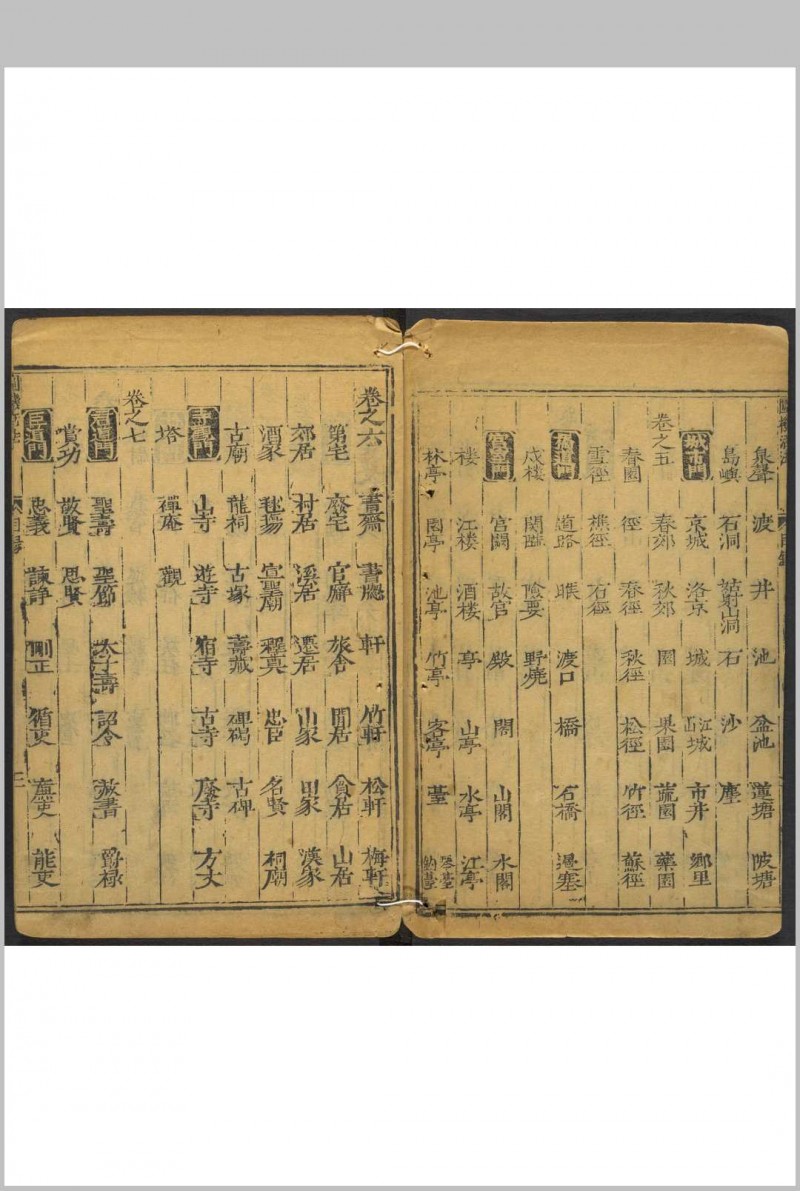 泉聲 渡 井 池 盆池 蓮塘 陂塘
島嶼 石洞 姑射山洞 石 沙 塵
城市門 京城 洛京 城 江城 市井 鄉里
卷之五 春郊 秋郊 園 果園 蔬園 藥園
春園 徑 春徑 秋徑 松徑 竹徑 蘇徑
雪徑 樵徑 石徑
道路 渡口 橋 石橋 邊塞
戍樓 關隘 險要 野燒
宮室門 宮闕 故宮 殿 閣 山閣 水閣
樓 江樓 酒樓 亭 山亭 水亭 江亭
林亭 園亭 池亭 竹亭 客亭 臺 琴臺 釣臺
卷之六 書齋 書牕 軒 竹軒 松軒 梅軒
第宅 廢宅 官廨 旅舍 閒居 貧居 山居
郊居 村居 溪居 遷居 山家 田家 漁家
酒家 毬場 宣聖廟 釋奠 忠臣 名賢 祠廟
古廟 龍祠 古塚 壽藏 碑碣 古碑
山寺 遊寺 宿寺 古寺 廢寺 方丈
塔 禪庵 觀
卷之七
君道門 聖壽 聖節 太子壽 詔令 赦書 爵祿
賞功 敬賢 思賢
臣道門 忠義 諫諍 剛正 循吏 廉吏 能吏
目錄